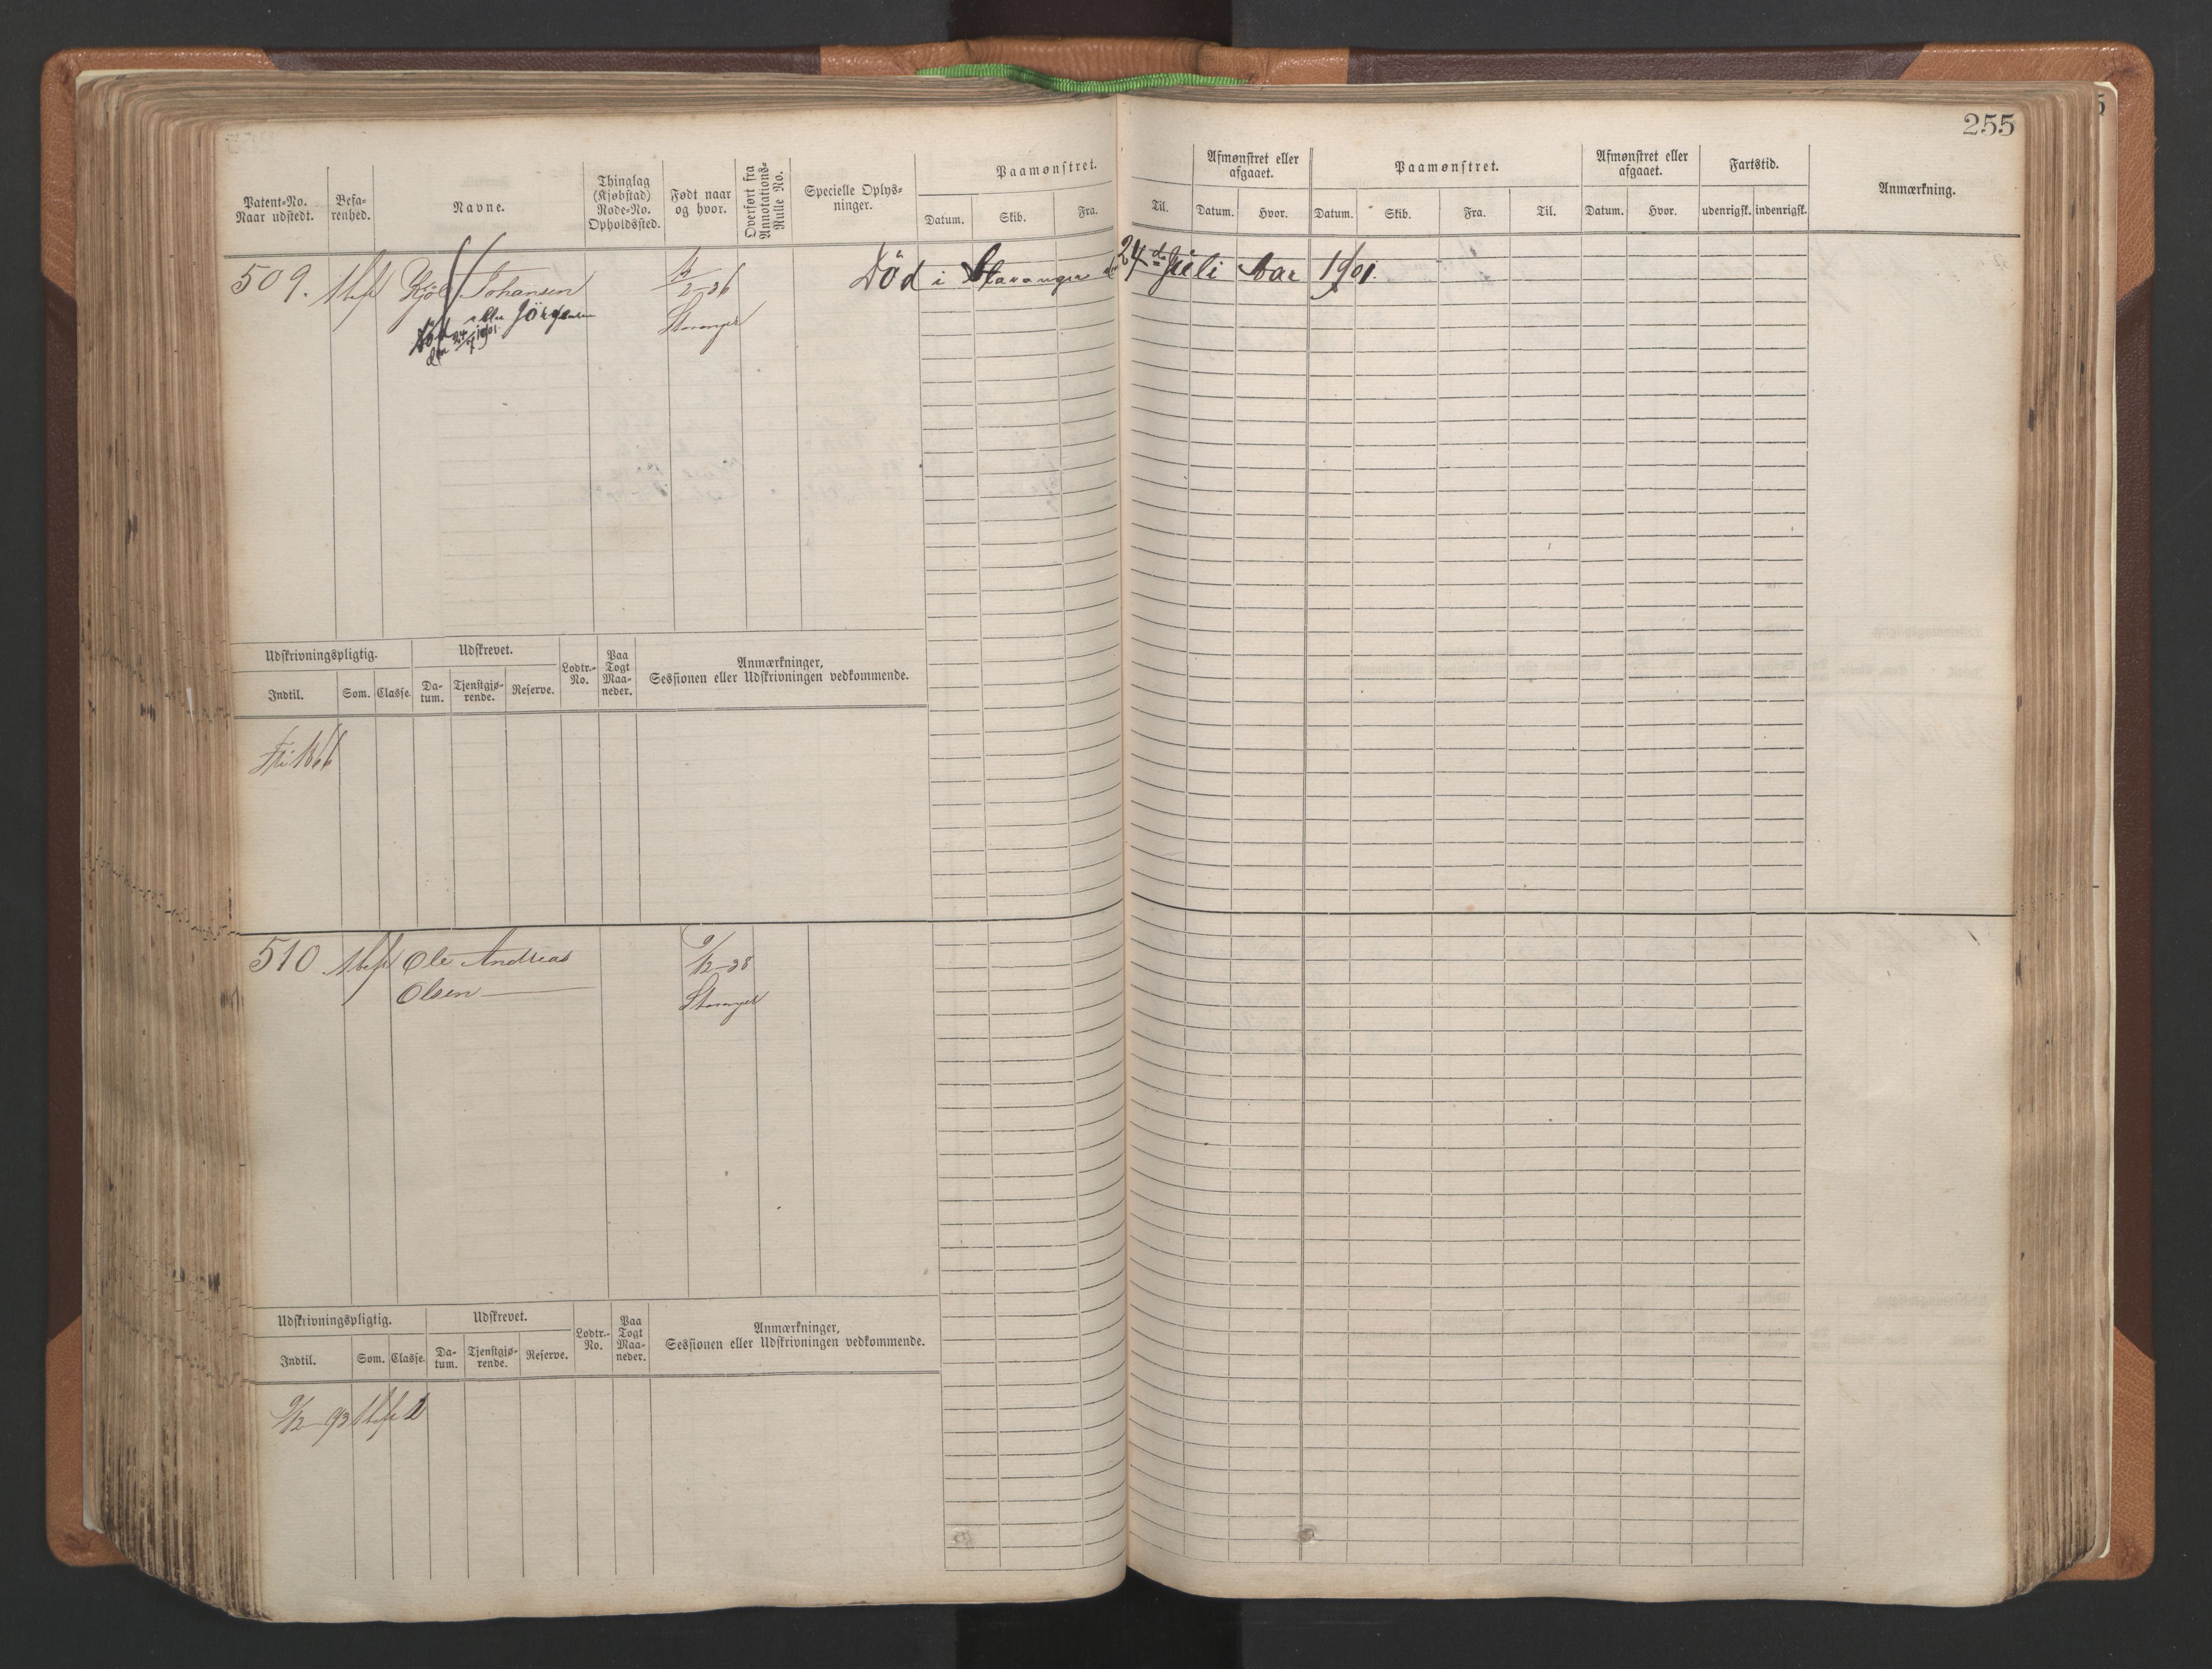 255
Patent-No.
Naar udstedt.
Befa-
renhed.
Navne.
Thinglag
(Kjøbstad)
Rode-No.
Opholdssted.
Født naar
og hvor.
Overført fra
Annotations-
Rulle No.
Specielle Oplys-
ninger.
Paamønstret.
Datum. Skib. Fra.
Til.
Afmønstret eller
afgaaet.
Datum. Hvor.
Paamønstret.
Datum. Skib. Fra. Til.
Afmønstret eller
afgaaet.
Datum. Hvor.
Fartstid.
udenrigsk. indenrigsk.
Anmærkning.
509. Johansen
eller Jörgensen
Död
den 24/7 1901.
2-36
Stavanger
Död i Stavanger den 24de Juli Aar 1901.
Udskrivningspligtig.
Indtil. Som. Classe.
Udskrevet.
Da-
tum.
Tjenstgjø-
rende.
Reserve.
Lodtr.-
No.
Paa
Togt
Maa-
neder.
Anmærkninger,
Sessionen eller Udskrivningen vedkommende.
Fri 1866
510. Ole Andreas
Olsen
9/12-38
Stavanger
Udskrivningspligtig.
Indtil. Som. Classe.
Udskrevet.
Da-
tum.
Tjenstgjø-
rende.
Reserve.
Lodtr.-
No.
Paa
Togt
Maa-
neder.
Anmærkninger,
Sessionen eller Udskrivningen vedkommende.
9/12-93